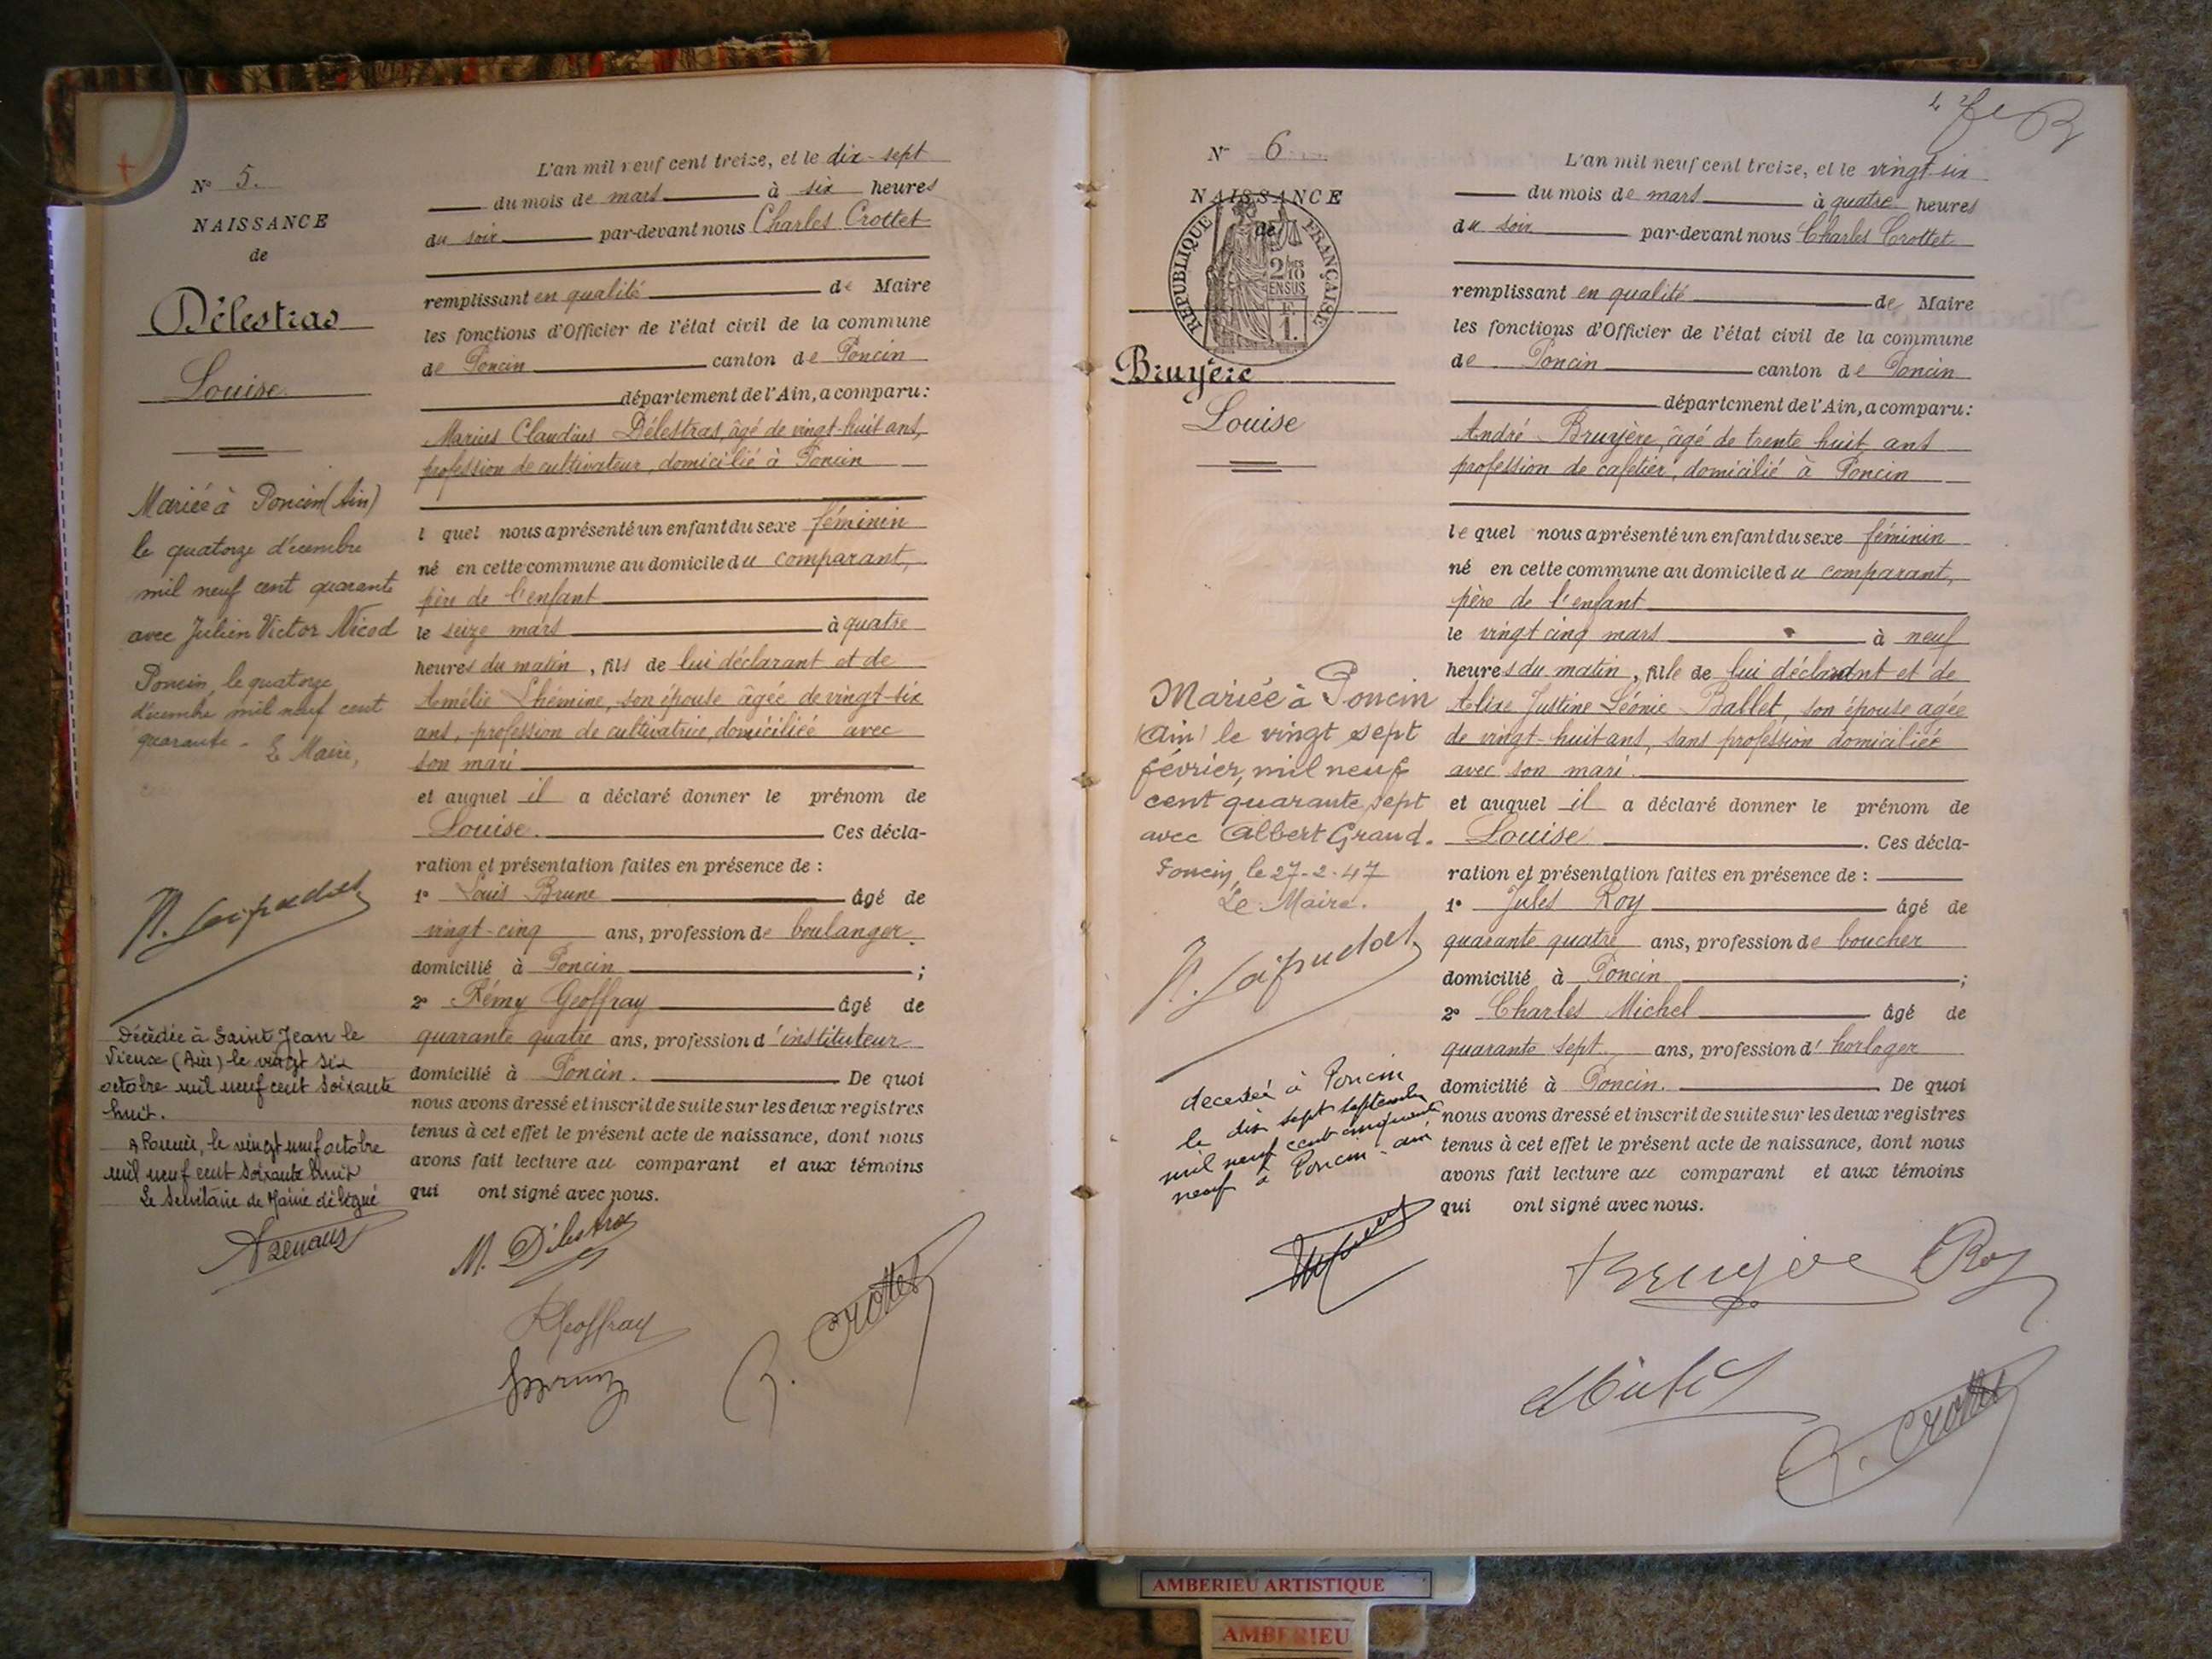 N° 5.
NAISSANCE
de
Délestras
Louise
Mariée à Poncin (Ain)
le quatorze décembre
mil neuf cent quarante
avec Julien Victor Nicod
Poncin, le quatorze
décembre mil neuf cent
quarante - Le Maire,
Décédée à Saint Jean le
Vieux (Ain) le vingt six
octobre mil neuf cent soixante
huit.
A Poncin, le vingt neuf octobre
mil neuf cent soixante huit
Le Secrétaire de Mairie délégué
L'an mil neuf cent treize, et le dix-sept
du mois de mars à six heures
du soir par-devant nous Charles Crottet
remplissant en qualité de Maire
les fonctions d'Officier de l'état civil de la commune
de Poncin canton de Poncin
département de l'Ain, a comparu:
Marius Claudius Délestras, âgé de vingt-huit ans,
profession de cultivateur, domicilié à Poncin
l quel nous a présenté un enfant du sexe féminin
né en cette commune au domicile du comparant,
père de l'enfant
le seize mars à quatre
heures du matin, fils de lui déclarant et de
Amélie Lhémine, son épouse âgée de vingt-six
ans, profession de cultivatrice, domiciliée avec
son mari
et auquel il a déclaré donner le prénom de
Louise. Ces décla-
ration et présentation faites en présence de :
1° Louis Brune âgé de
vingt-cinq ans, profession de boulanger.
domicilié à Poncin ;
2° Rémy Geoffray âgé de
quarante quatre ans, profession d'instituteur
domicilié à Poncin. De quoi
nous avons dressé et inscrit de suite sur les deux registres
tenus à cet effet le présent acte de naissance, dont nous
avons fait lecture au comparant et aux témoins
qui ont signé avec nous.
M. Délestras
RGeoffray
Crottet
4
N° 6
NAISSANCE
de
REPUBLIQUE FRANÇAISE
2/10
EN SUS
1.
Bruyère
Louise
Mariée à Poncin
(Ain) le vingt sept
février, mil neuf
cent quarante sept
avec Albert Grand.
Poncin, le 27-2-47
Le Maire.
decedée à Poncin
le dix sept septembre
mil neuf cent cinquante
neuf à Poncin - ain
L'an mil neuf cent treize, et le vingt-six
du mois de mars à quatre heures
du soir par-devant nous Charles Crottet
remplissant en qualité de Maire
les fonctions d'Officier de l'état civil de la commune
de Poncin canton de Poncin
département de l'Ain, a comparu:
André Bruyère, âgé de trente huit ans
profession de cafetier, domicilié à Poncin
lequel nous a présenté un enfant du sexe féminin
né en cette commune au domicile du comparant,
père de l'enfant
le vingt cinq mars à neuf
heures du matin, fille de lui déclarant et de
Alise Justine Léonie Ballet, son épouse agée
de vingt-huit ans, sans profession domiciliée
avec son mari.
et auquel il a déclaré donner le prénom de
Louise. Ces décla-
ration et présentation faites en présence de :
1° Jules Roy âgé de
quarante quatre ans, profession de boucher
domicilié à Poncin ;
2° Charles Michel âgé de
quarante sept ans, profession d'horloger
domicilié à Poncin. De quoi
nous avons dressé et inscrit de suite sur les deux registres
tenus à cet effet le présent acte de naissance, dont nous
avons fait lecture au comparant et aux témoins
qui ont signé avec nous.
Bruyère Roy
Crottet
AMBERIEU ARTISTIQUE
AMBERIEU